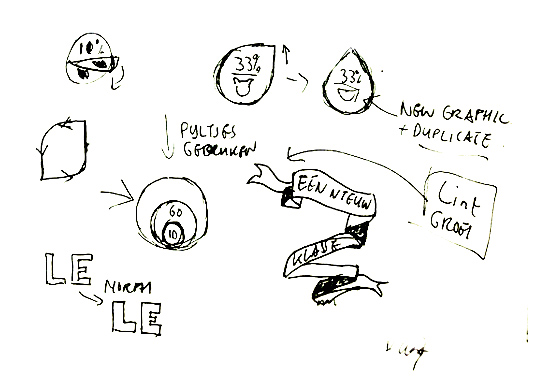 10%
33%
33%
NEW GRAPHIC
+ DUPLICATE
PIJLTJES
GEBRUIKEN
EEN NIEUW
Lint
GROOT
60
10
LE
MORPH
LE